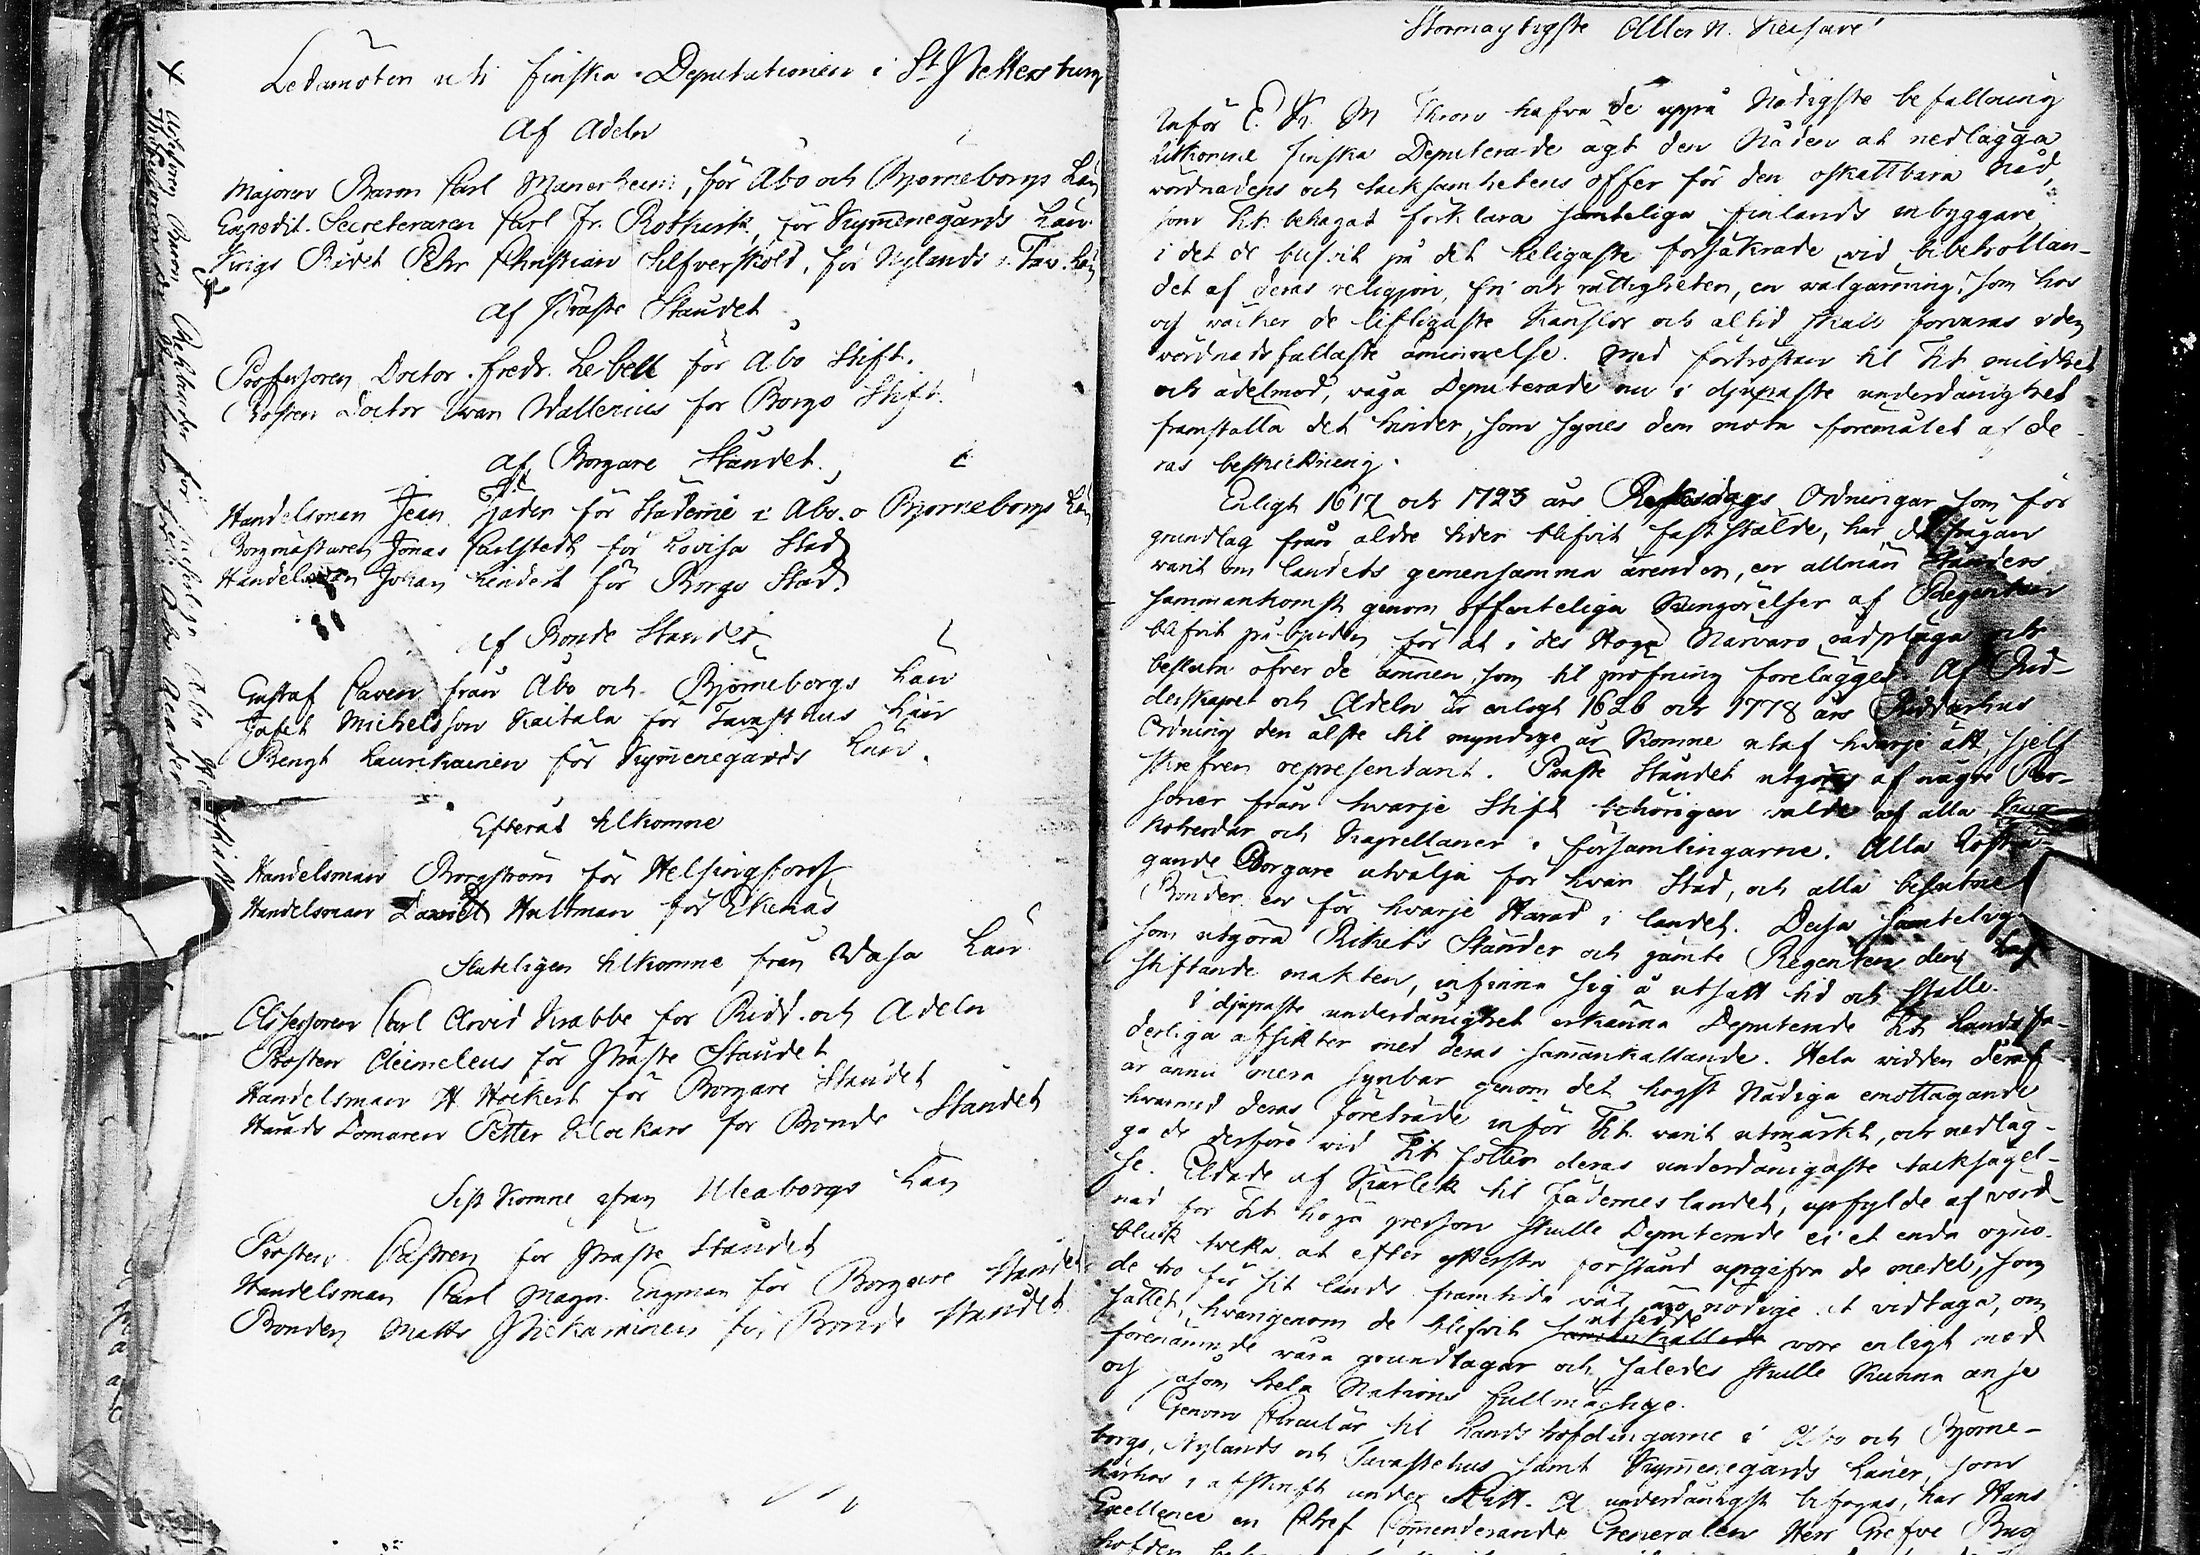 Ledamöten uti finska Deputationen i St Pettersburg
Af Adeln
Majoren Baron Carl Manerheim, för Åbo och Björneborgs Län
Expedit. Secreteraren Carl Fr. Rotkirk, för Kymenegårds Län
Krigs Rådet Pehr Christian Silfverskiöld, för Nylands o Taw. Län
Af Präste Ståndet
Professoren Doctor Fredr. Leibell för Åbo Stift.
Prosten Doctor Iwan Wallenius för Borgo Stift.
Af Borgare Ståndet
Handelsman Jean Tjäder för Städerne i Åbo o Björneborgs Län
Borgmästaren Jonas Carlstedt för Lovisa Stad
Handelsman Johan Lindert för Borgo Stad
Af Bonde Ståndet
Gustaf Caven från Åbo och Björneborgs Län
Jafet Michelsson Kaitala för Tavasthus Län
Bengt Laurikainen för Kymenegårds Län.
Efteråt tilkomne
Handelsman Borgström för Helsingfors
Handelsman David Hultman för Ekenäs
Sluteligen tilkomne från Wasa Län
Assessoren Carl Arvid Krabbe för Ridd. och Adeln
Prosten Aeimeleus för Präste Ståndet
Handelsman H Höckert för Borgare Ståndet
Härads Domaren Petter Klockars för Bonde Ståndet
Sist komne ifrån Uleaborgs Län
Prosten Castren för Präste Ståndet
Handelsman Carl Magn. Engman för Borgare Ståndet
Bonden Matts Pickarainen för Bonde Ståndet
Stormagtigste Aller N. Keisare!
Inför E. K. M Thron hafva de uppå Nådigste befallning
utkomne finska Deputerade ägt den Nåden at nedlägga
vördnadens och tacksamhetens offer för den oskattbara Nåd,
som Tit. behagat förklara samteliga finlands inbyggare
i det de blifvit på det heligaste forsäkrade wid bibehollan-
det af deras religion, fri och rättigheter, en wälgärning, som hos
oss wäcker de lifligaste Känslor och altid skall förvaras i den
vördnadsfullaste åminnelse. Med förtröstan til Tit mildhet
och ädelmod, våga Deputerade nu i djupaste underdånighet
framställa det hinder, som synes dem möta föremålet af de-
ras beskickning.
Enligt 1617 och 1723 års Riksdags Ordningar som för
grundlag från äldre tider blifvit fastställde, har då frågan
varit om landets gemensamma ärenden, en allmän Ständers
sammankomst genom offenteliga Kungörelser af Regenten
blifvit påbuden, för at i des Höga Närvaro rådpläga och
besluta öfver de ämnen som til pröfning förelägges. Af Rid-
derskapet och Adeln är enligt 1626 och 1778 års Riddarhus
Ordning den älste til myndige år Komne utaf hvarje ätt, sjelf
skrefven representant. Präste Ståndet utgöres af någre Per-
soner från hwarje Stift behörigen valde af alla
koherdar och Kapellaner i församlingarne. Alla Röstä-
gande Borgare utvälja för hvar Stad, och alla besutne
Bönder en för hwarje Härad i landet. Dessa samtelige
som utgöra Rikets Ständer och jämte Regenten den lag-
stiftande makten, infinna sig å utsatt tid och ställe.
I djupaste underdånighet erkänna Deputerade Tit Landsfa-
derliga afsikter med deras sammankallande. Hela vidden deraf
är ännu mera synbar genom det högst Nådiga emottagande
hvarmed deras företräde inför Tit. varit utmärkt, och nedläg-
ga de derföre vid Tit fötter deras underdånigaste tacksägel-
se. Eldade af Kärlek til Fäderneslandet, upfylde af vörd-
nad för Tit höga person skulle Deputerade ei et enda ögno-
blick tveka at efter yttersta förstånd upgifva de medel, som
de tro för sit lands framtida väl nödige at vidtaga, om
sättet, hwarigenom de blifvit utsedde vore enligt med
förenämnde våra grundlagar och således skulle Kunna anse
oss såsom hela Nations fullmägtige.
Genom Circulär til Landshöfdingarne i Åbo och Björne-
borgs, Nylands och Tavastehus samt Kymmenegårds Läner, som
härhos i afskrift under Litt. A. underdånigst bifogas, har Hans
Excellence en Chef Commenderande Generalen Herr Grefve Bux